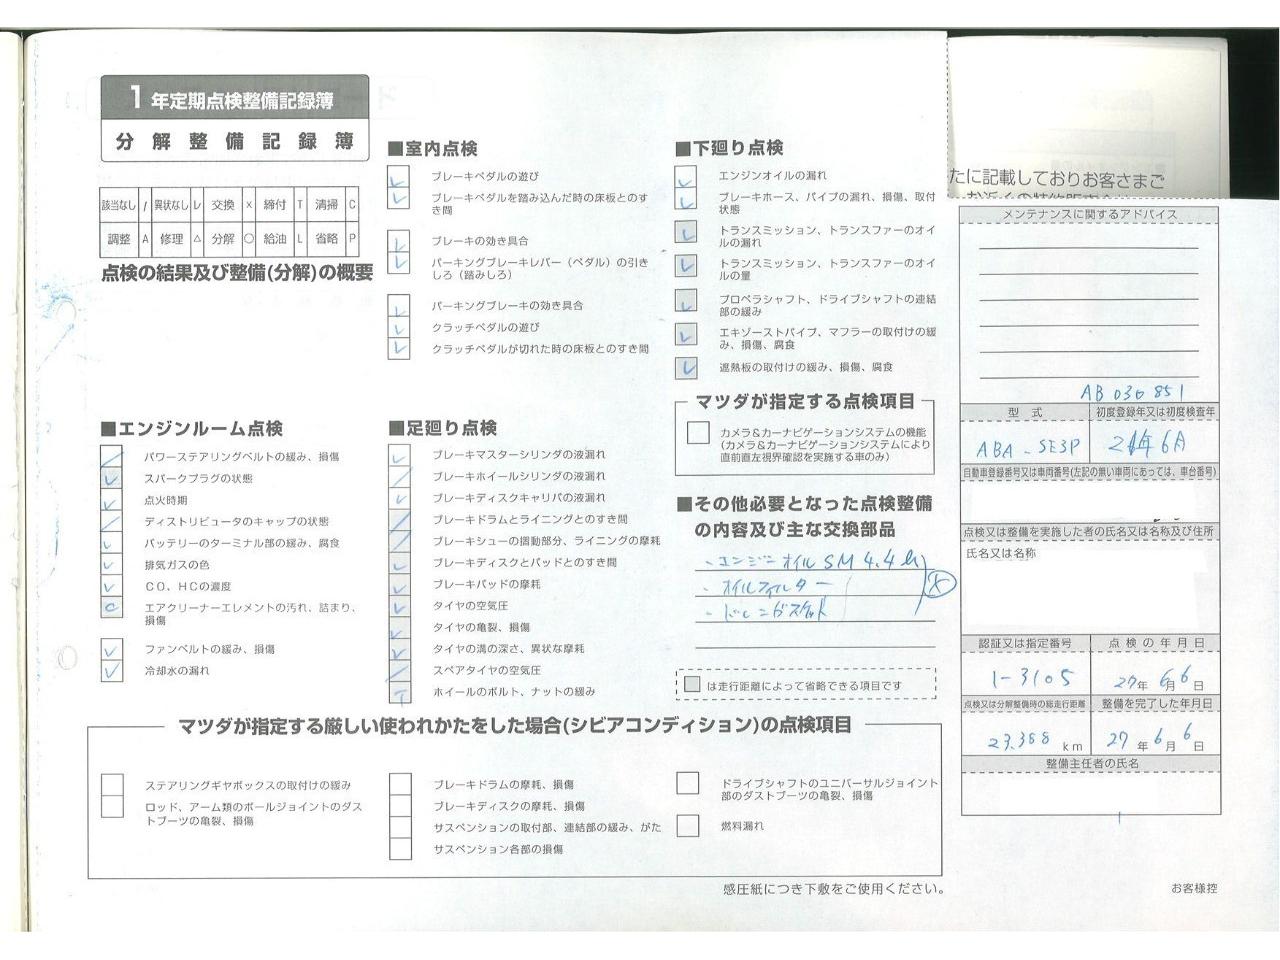 1 年定期点検整備記録簿
分解整備記録簿
該当なし / 異状なし レ 交換 × 締付 T 清掃 C
調整 A 修理 △ 分解 ○ 給油 L 省略 P
点検の結果及び整備(分解)の概要
■エンジンルーム点検
パワーステアリングベルトの緩み、損傷
スパークプラグの状態
点火時期
ディストリビュータのキャップの状態
バッテリーのターミナル部の緩み、腐食
排気ガスの色
CO、HCの濃度
エアクリーナーエレメントの汚れ、詰まり、
損傷
ファンベルトの緩み、損傷
冷却水の漏れ
■室内点検
ブレーキペダルの遊び
ブレーキペダルを踏み込んだ時の床板とのす
き間
ブレーキの効き具合
パーキングブレーキレバー（ペダル）の引き
しろ（踏みしろ）
パーキングブレーキの効き具合
クラッチペダルの遊び
クラッチペダルが切れた時の床板とのすき間
■足廻り点検
ブレーキマスターシリンダの液漏れ
ブレーキホイールシリンダの液漏れ
ブレーキディスクキャリパの液漏れ
ブレーキドラムとライニングとのすき間
ブレーキシューの摺動部分、ライニングの摩耗
ブレーキディスクとパッドとのすき間
ブレーキパッドの摩耗
タイヤの空気圧
タイヤの亀裂、損傷
タイヤの溝の深さ、異状な摩耗
スペアタイヤの空気圧
ホイールのボルト、ナットの緩み
■下廻り点検
エンジンオイルの漏れ
ブレーキホース、パイプの漏れ、損傷、取付
状態
トランスミッション、トランスファーのオイ
ルの漏れ
トランスミッション、トランスファーのオイ
ルの量
プロペラシャフト、ドライブシャフトの連結
部の緩み
エキゾーストパイプ、マフラーの取付けの緩
み、損傷、腐食
遮熱板の取付けの緩み、損傷、腐食
マツダが指定する点検項目
カメラ＆カーナビゲーションシステムの機能
（カメラ＆カーナビゲーションシステムにより
直前直左視界確認を実施する車のみ）
■その他必要となった点検整備
の内容及び主な交換部品
・エンジンオイル SM 4.4
・オイルフィルター
・ドレンガスケット
は走行距離によって省略できる項目です
マツダが指定する厳しい使われかたをした場合(シビアコンディション)の点検項目
ステアリングギヤボックスの取付けの緩み
ロッド、アーム類のボールジョイントのダス
トブーツの亀裂、損傷
ブレーキドラムの摩耗、損傷
ブレーキディスクの摩耗、損傷
サスペンションの取付部、連結部の緩み、がた
サスペンション各部の損傷
ドライブシャフトのユニバーサルジョイント
部のダストブーツの亀裂、損傷
燃料漏れ
感圧紙につき下敷をご使用ください。
たに記載しておりお客さまご
メンテナンスに関するアドバイス
AB 030851
型式 初度登録年又は初度検査年
ABA-SE3P 21年6月
自動車登録番号又は車両番号(左記の無い車両にあっては、車台番号)
点検又は整備を実施した者の氏名又は名称及び住所
氏名又は名称
認証又は指定番号 点検の年月日
1-3105 27年6月6日
点検又は分解整備時の総走行距離 整備を完了した年月日
23,388 km 27年6月6日
整備主任者の氏名
お客様控